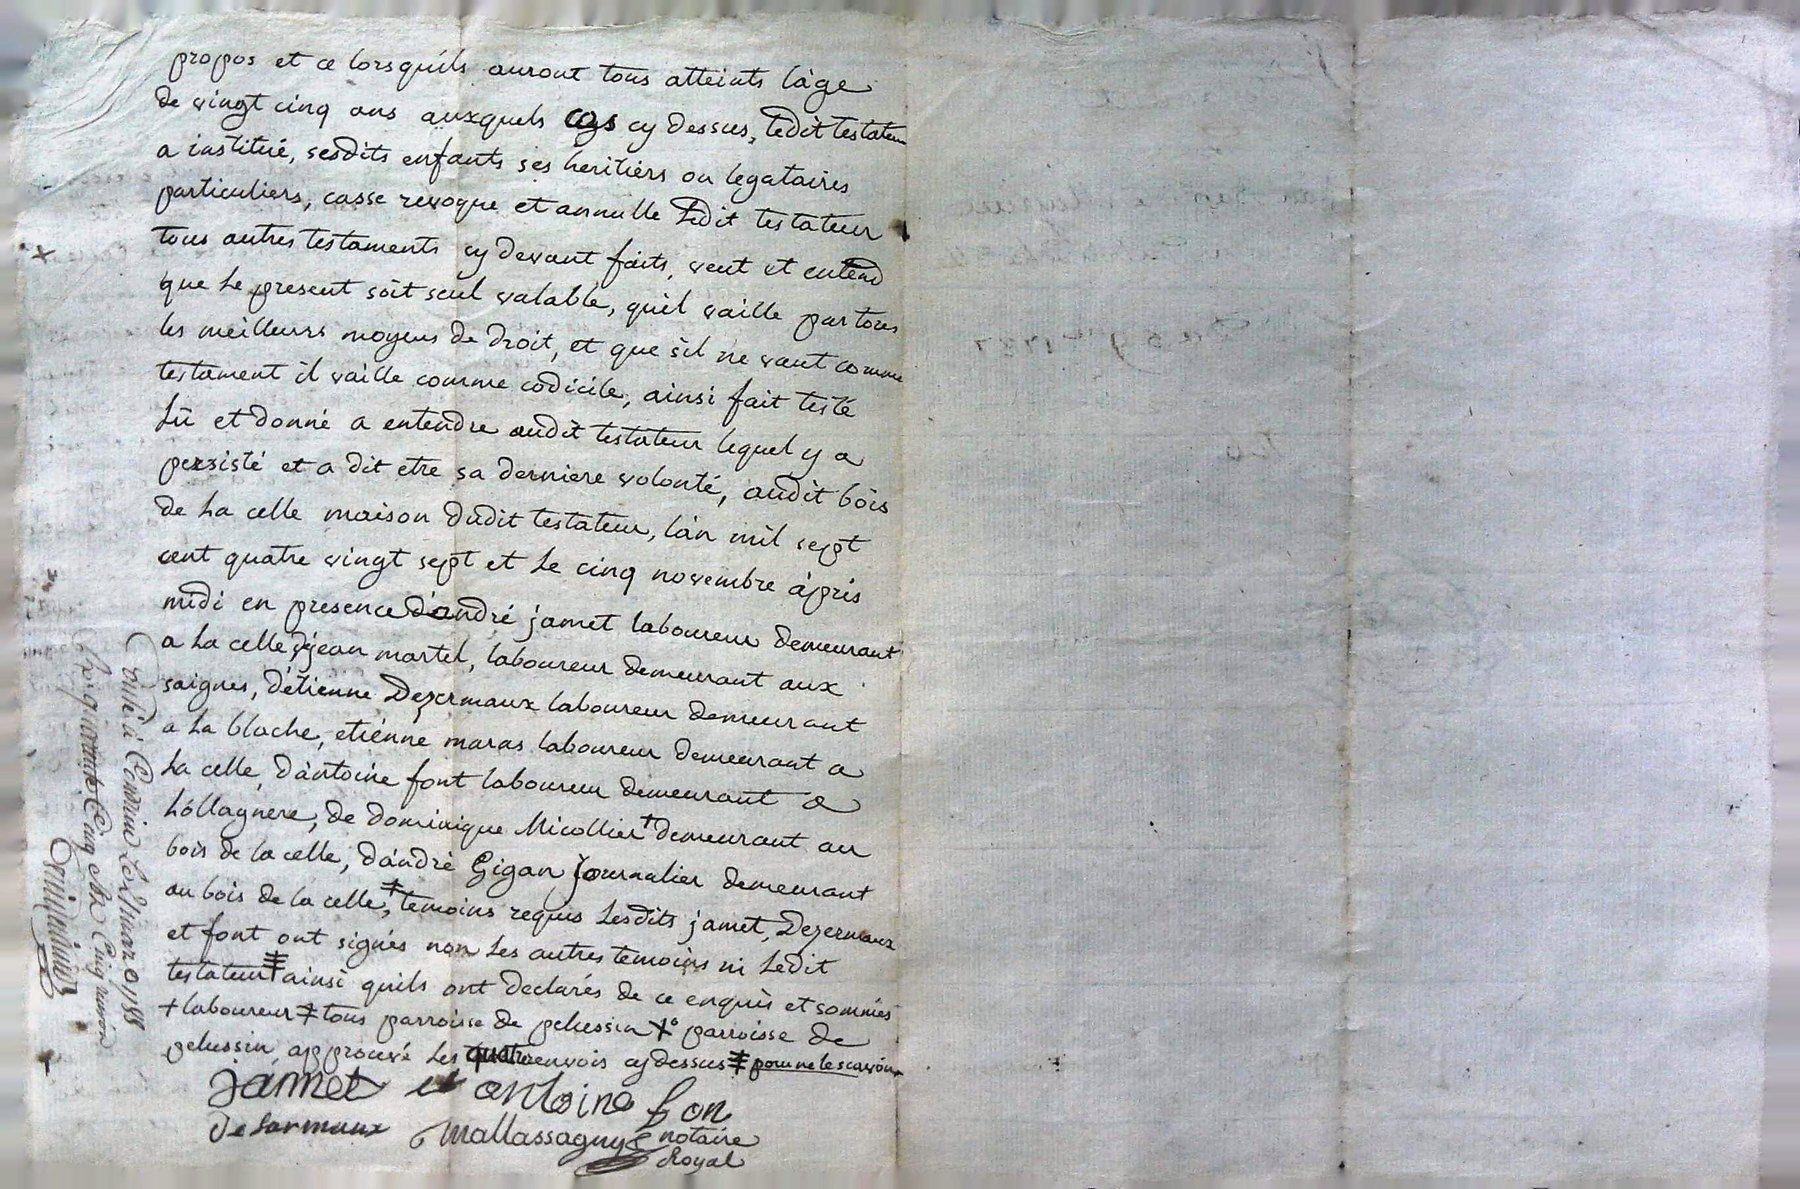 propos et ce lorsquils auront tous atteints l'age
de vingt cinq ans auxquels cy dessus, ledit testateur
a institué, sesdits enfants ses heritiers ou legataires
particuliers, casse revoque et annulle Ledit testateur
tous autres testaments cy devant faits, veut et entend
que Le present soit seul valable, qu'il vaille par tous
les meilleurs moyens de droit, et que s'il ne vaut comme
testament il vaille comme codicile, ainsi fait testé
Lû et donné a entendre audit testateur lequel y a
persisté et a dit etre sa derniere volonté, audit bois
de La celle maison dudit testateur, l'an mil sept
cent quatre vingt sept et Le cinq novembre àpris
midi en presence d'andré jamet laboureur demeurant
a La celle, jean martel, laboureur demeurant aux
saignes, d'étienne Dezermaux laboureur demeurant
a La blache, etiénne maras laboureur demeurant a
La celle, d'antoine font laboureur demeurant a
Lóllagnere, de dominique Micollier + demeurant au
bois de la celle, d'andré Gigan Journalier demeurant
au bois de la celle, ǂ temoins requis Lesdits jamet, Dezermaux
et font ont signés non Les autres temoins ni Ledit
testateur ainsi quils ont declarés de ce enquis et sommés
+ laboureur ǂ tous parroisse de pelussin X° parroisse de
pelussin approuvé Les quatre renvois cy dessus pour ne le scavoir
jamet et antoine fon
desarmaux Mallassagny notaire
Royal
X